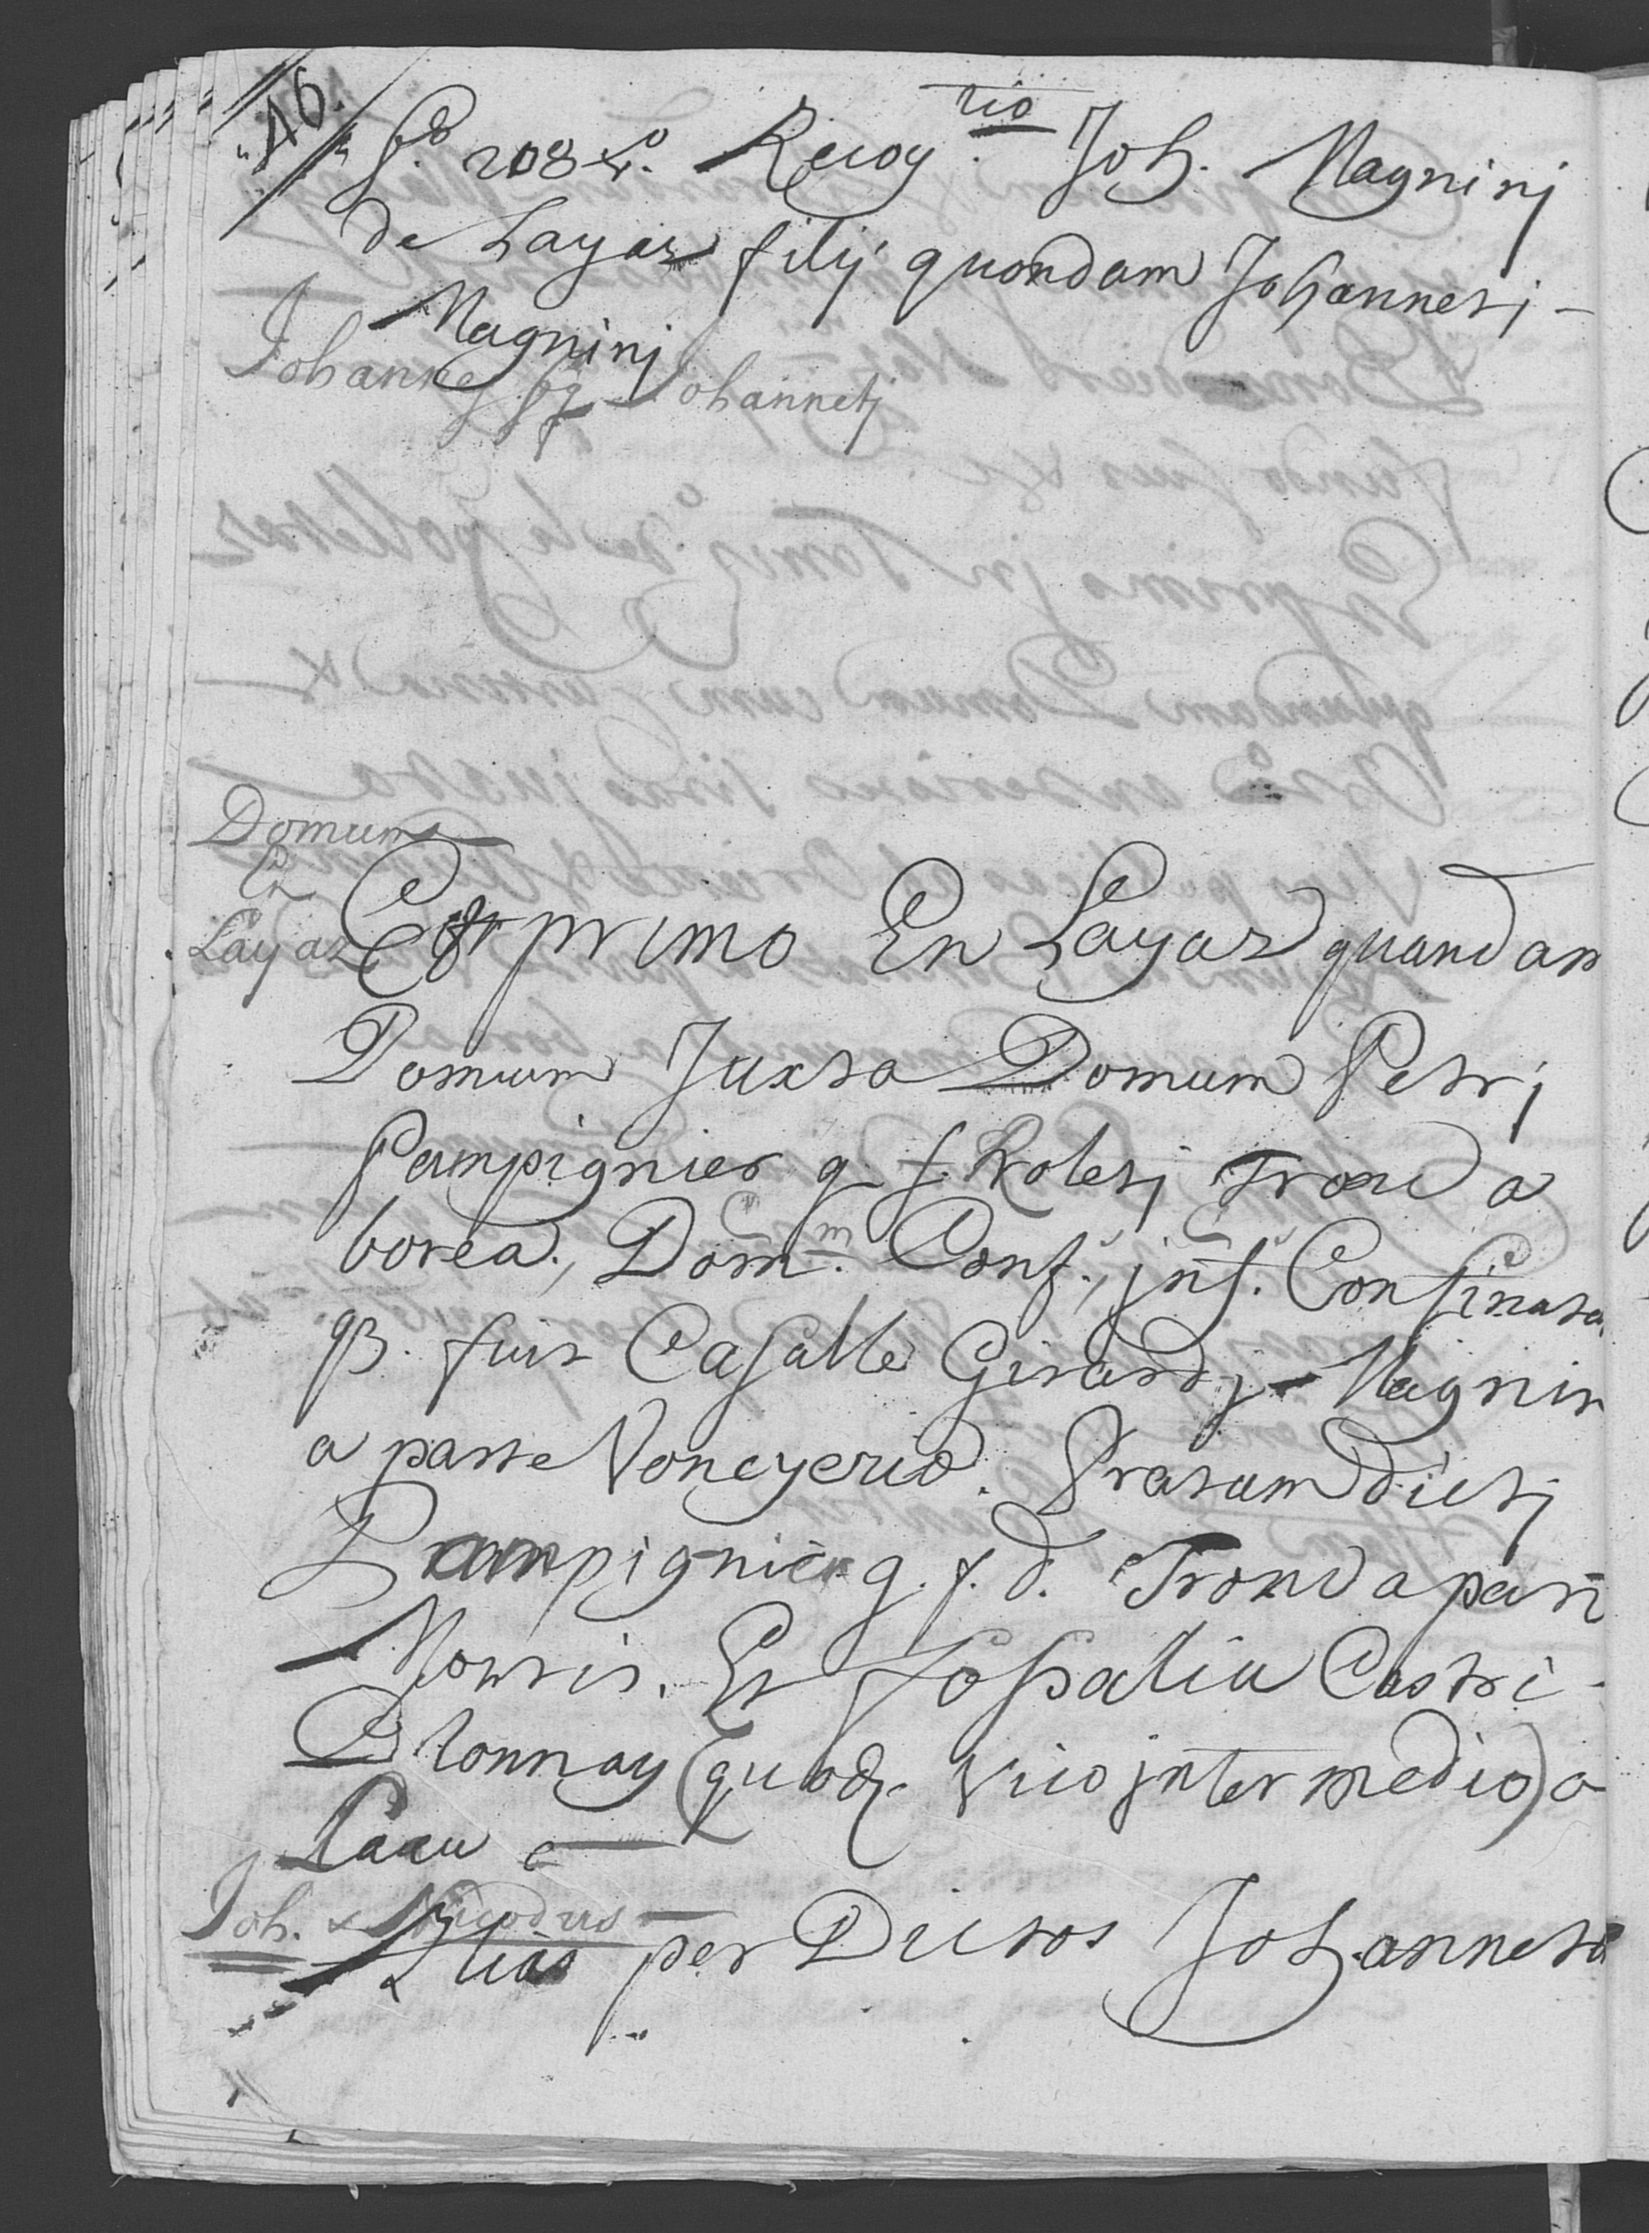 46.
f.º 208 vº. Recog.tio Joh. Magninj
de Layaz filij quondam Johannetj -
Magninj
Johannes fz Johannetj
Domum
En
Layaz
Et primo En Layaz quandam
Domum Juxta Domum Petrj
Pampignier q. f. Roletj Trond a
borea., Dom.m Conf., jnf. Confinata
qß. fuit Casalle Girardj Magnin
a parte Voneyerid. Pratum dictj
Pampignier q. f. d. Trond a part
Montis. Et fossalia Castri
Blonnay (quodz. vico jntermedio) a
Laau
Joh. & Nicodus
Alias per Dictos Johannetu